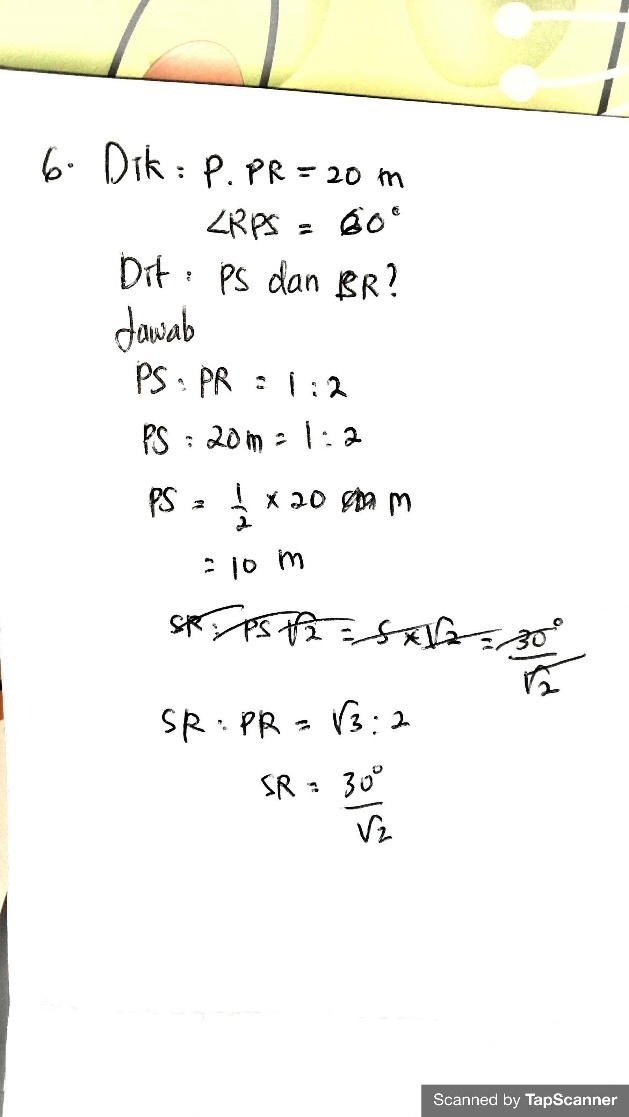 6. Dik : P. PR = 20 m
∠RPS = 60°
Dit : PS dan SR?
Jawab
PS : PR = 1 : 2
PS : 20 m = 1 : 2
PS = 1/2 × 20 m
= 10 m
SR : PS √2 = 5 × √2 = 30°/√2
SR : PR = √3 : 2
SR = 30°/√2
Scanned by TapScanner